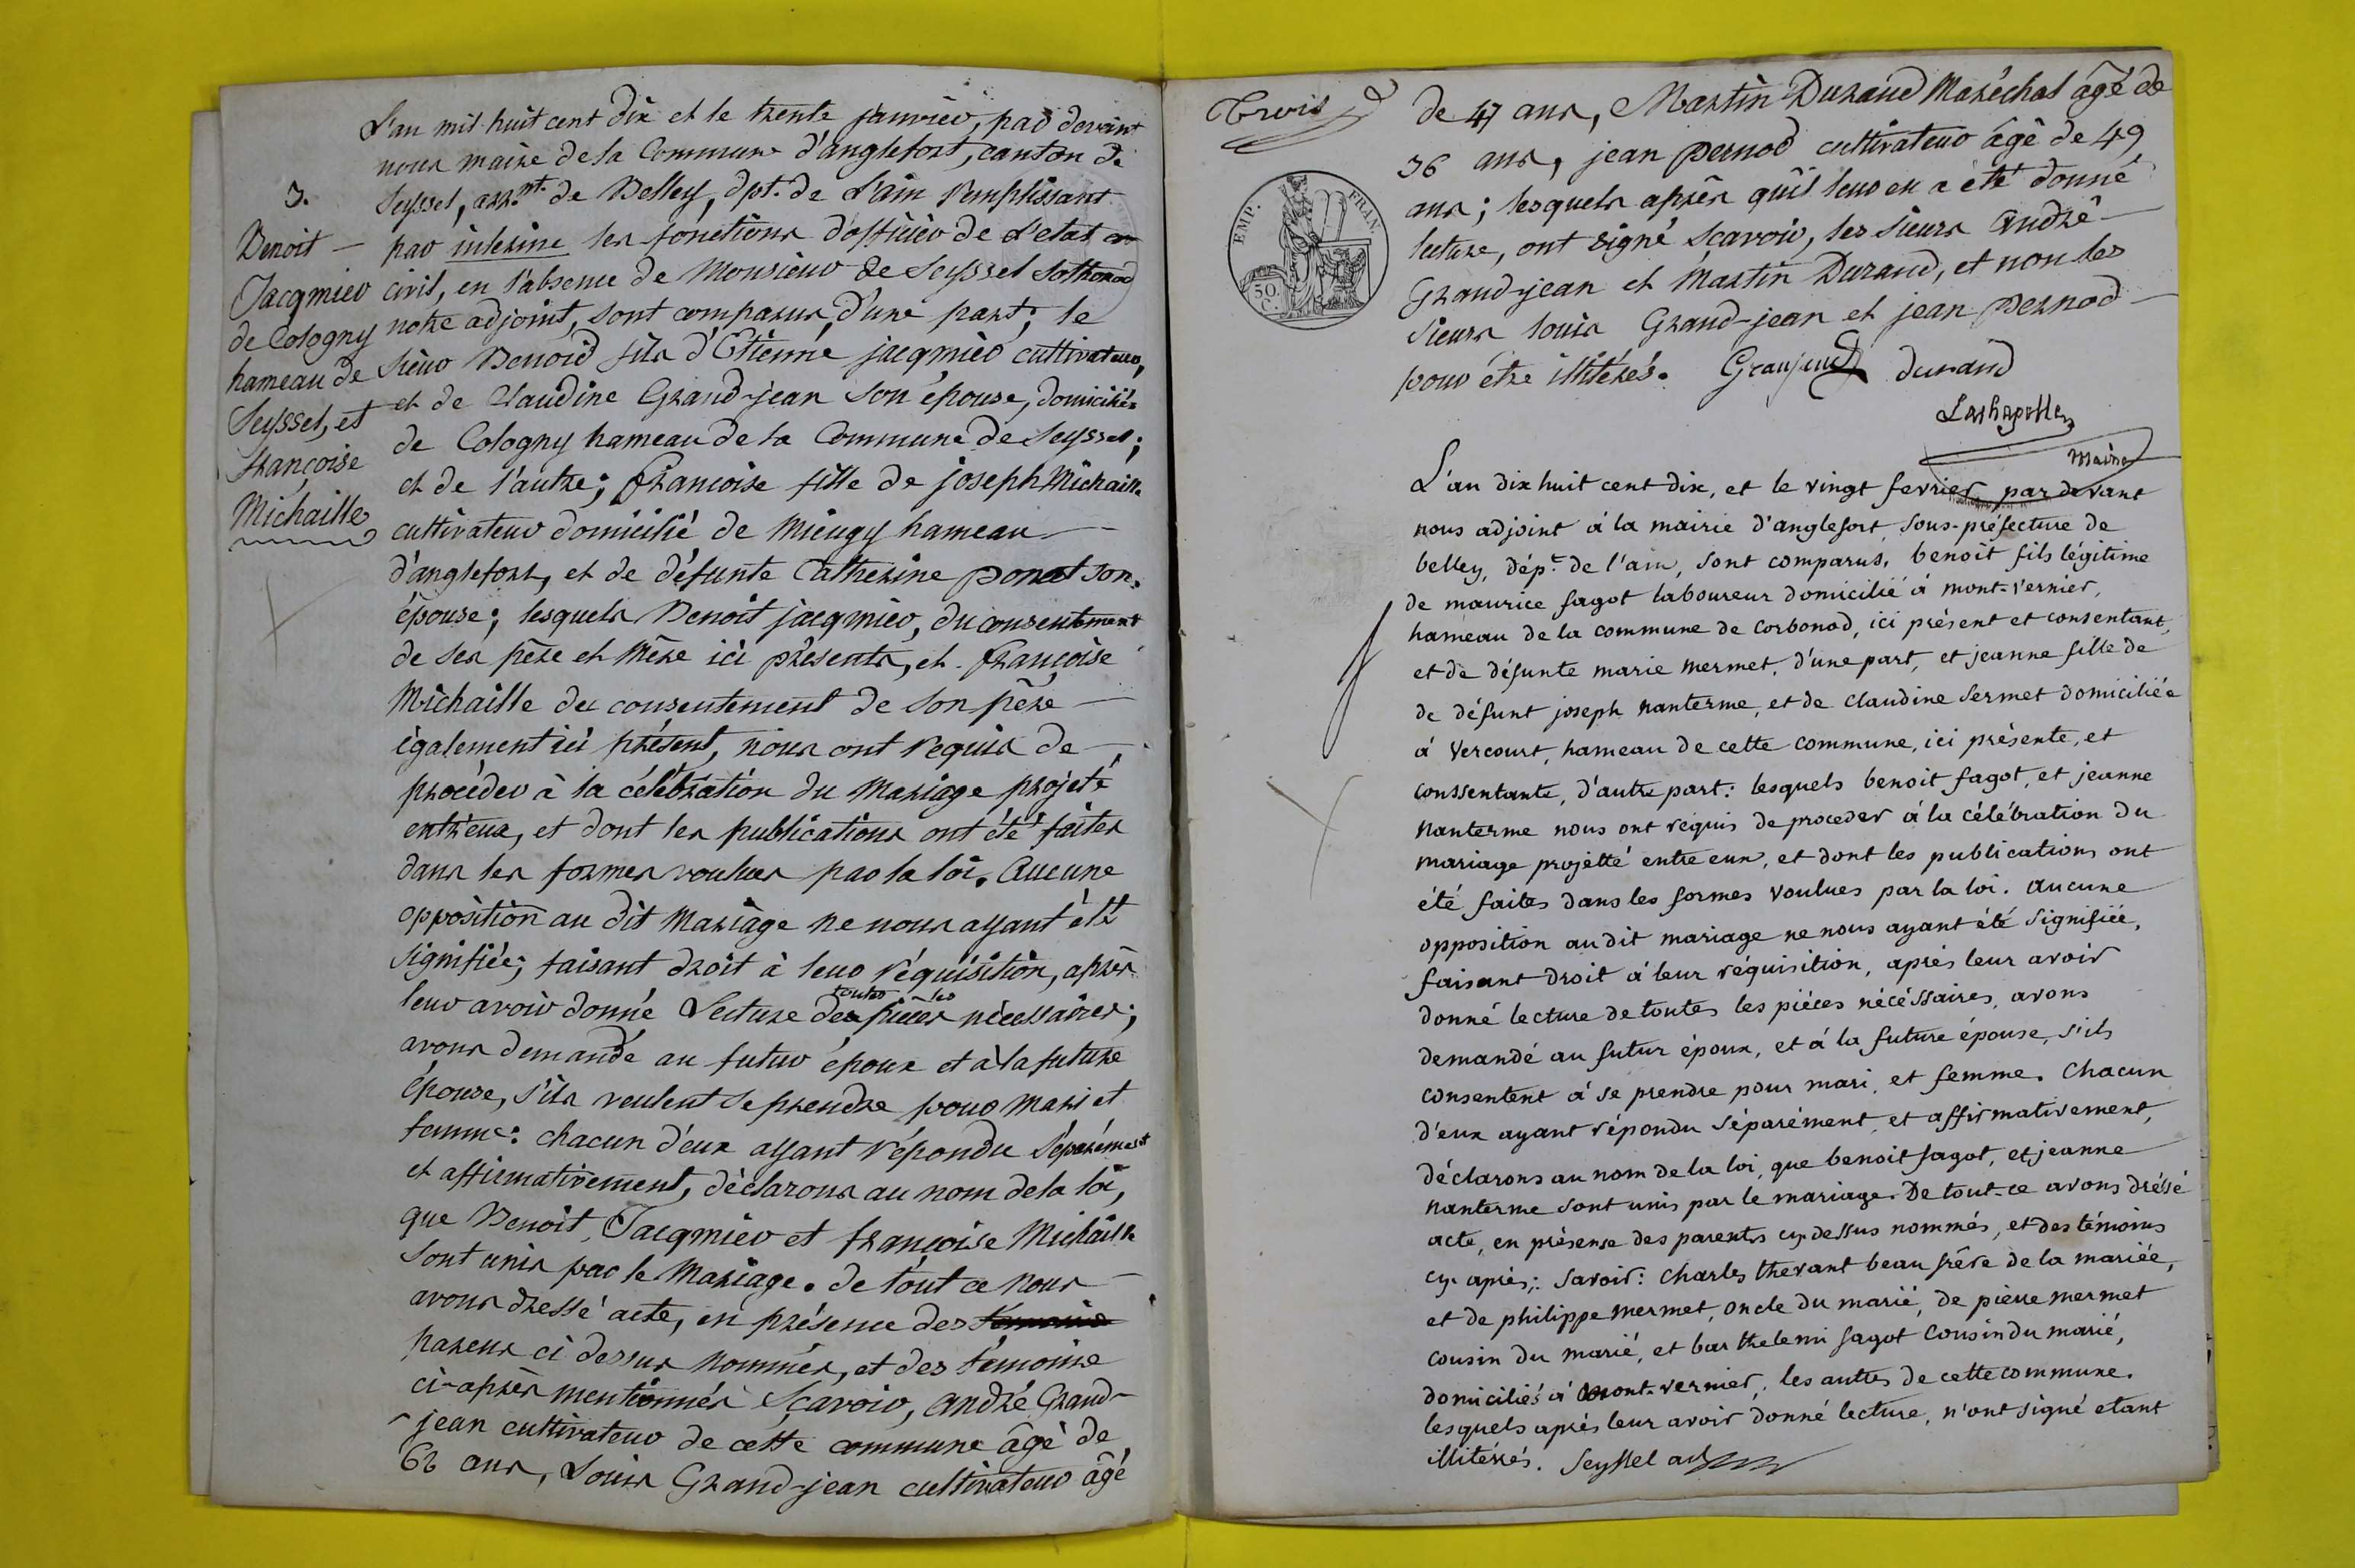 L'an mil huit cent dix et le trente janvier, par devant
nous maire de la Commune d'anglefort, canton de
Seyssel, arr.mt de Belley, dpt. de L'ain Remplissant
par interime les fonctions d'officier de L'etat
civil, en l'absence de Monsieur de Seyssel Sothonod
notre adjoint, sont comparus, d'une part; le
Sieur Benoid fils d'Etienne jacqmier cultivateur,
et de Claudine Grand-jean son épouse, domiciliés
de Cologny hameau de la Commune de Seyssel;
et de l'autre; françoise fille de joseph Michaille
cultivateur domicilié de Mieugy hameau
d'anglefort, et de défunte Catherine ponet son
épouse; lesquels Benoit jacqmier, du consentement
de ses père et Mère ici présents, et françoise
Michaille du consentement de son père
également ici présent, nous ont requis de
procéder à la célébration du Mariage projeté
entr'eux, et dont les publications ont été faites
dans les formes voulues par la loi. Aucune
opposition au dit Mariage ne nous ayant été
signifiée; faisant droit à leur réquisition, après
leur avoir donné Lecture de toutes les pièces nécessaires;
avons demandé au futur époux et à la future
épouse, s'ils veulent se prendre pour Mari et
femme: chacun d'eux ayant répondu séparément
et affirmativement, déclarons au nom de la loi,
que Benoit Jacqmier et françoise Michaille
sont unis par le Mariage. de tout ce nous
avons dressé acte, en présence des
parens ci dessus Nommés, et des témoins
ci-après mentionnés Sçavoir, André Grand-
jean cultivateur de cette commune âgé de
62 ans, Louis Grand-jean cultivateur âgé
3.
Benoit
Jacqmier
de Cologny
hameau de
Seyssel, et
françoise
Michaille
Trois
EMP. FRAN.
50. C.
de 47 ans, Martin Durand Maréchal âgé de
36 ans, jean pernod cultivateur âgé de 49
ans; lesquels après qu'il leur en a été donné
lecture, ont signé sçavoir, les sieurs André
Grand-jean et Martin Durand, et non les
Sieurs Louis Grand-jean et jean pernod
pour être illitérés. Granjean durand
Lachapelle
Maire
L'an dix huit cent dix, et le vingt fevrier par devant
nous adjoint à la mairie d'anglefort, sous-préfecture de
belley, dépt. de l'ain, sont comparus, benoit fils légitime
de maurice fagot laboureur domicilié à mont-vernier,
hameau de la commune de Corbonod, ici présent et consentant,
et de défunte marie mermet, d'une part, et jeanne fille de
de défunt joseph nanterme, et de claudine sermet domiciliée
à Vercourt, hameau de cette commune, ici présente, et
conssentante, d'autre part: lesquels benoit fagot, et jeanne
nanterme nous ont requis de proceder à la célébration du
mariage projetté entre eux, et dont les publications ont
été faites dans les formes voulues par la loi. aucune
opposition au dit mariage ne nous ayant été signifiée,
faisant droit à leur réquisition, après leur avoir
donné lecture de toutes les pièces nécéssaires, avons
demandé au futur époux, et à la future épouse, s'ils
consentent à se prendre pour mari, et femme. Chacun
d'eux ayant répondu séparément, et affirmativement,
déclarons au nom de la loi, que benoit fagot, et jeanne
nanterme sont unis par le mariage. De tout-ce avons dréssé
acte, en présense des parents cy-dessus nommés, et des témoins
cy-après; savoir: charles thevant beau frère de la mariée,
et de philippe mermet, oncle du marié, de pierre mermet
cousin du marié, et barthelemi fagot cousin du marié,
domiciliés à mont-vernier, les autres de cette commune.
lesquels après leur avoir donné lecture, n'ont signé etant
illitérés. Seyssel adj